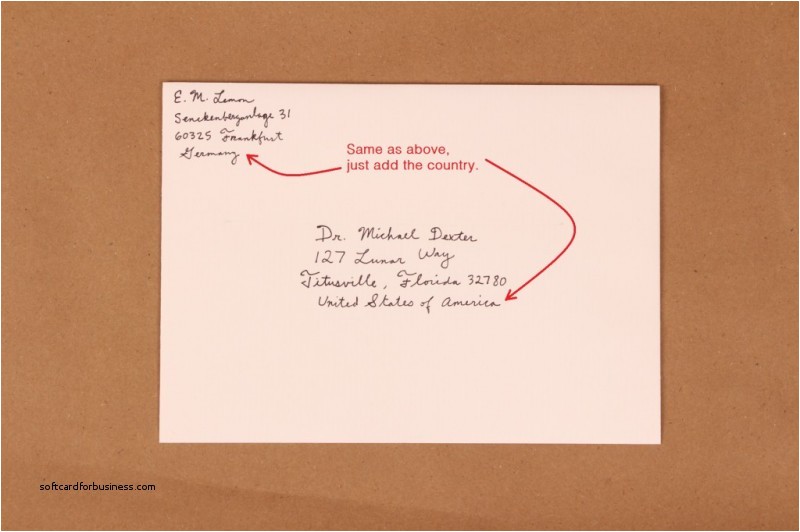 E. M. Lemon
Senckenberganlage 31
60325 Frankfurt
Germany
Same as above,
just add the country.
Dr. Michael Dexter
127 Lunar Way
Titusville, Florida 32780
United States of America
softcardforbusiness.com